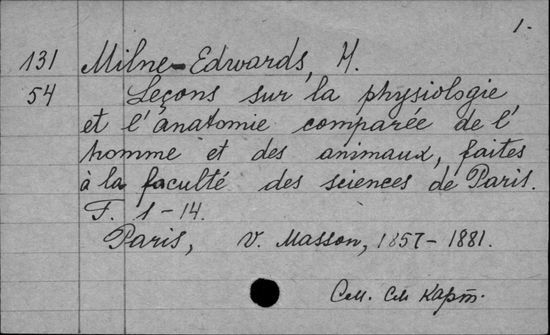 1.
131 Milne-Edwards, H.
54 Leçons sur la physiologie
et l'anatomie comparée de l'
homme et des animaux, faites
à la faculté des sciences de Paris.
T. 1-14.
Paris, V. Masson, 1857-1881.
См. след карт.